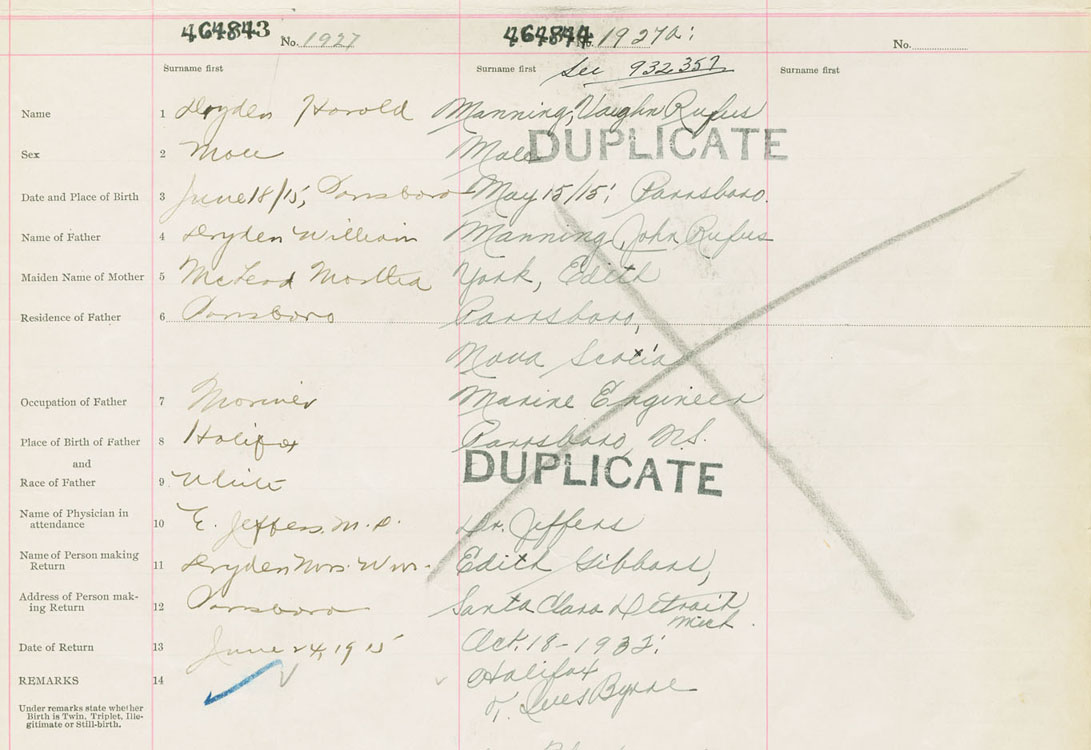 464843 No. 1927
464844 No. 1927a;
No.
Surname first
Surname first See 932357
Surname first
Name 1 Dryden Harold Manning, Vaughn Rufus
DUPLICATE
Sex 2 Male Male
Date and Place of Birth 3 June 18/15; Parrsboro May 15/15; Parrsboro.
Name of Father 4 Dryden William Manning, John Rufus
Maiden Name of Mother 5 McLeod Martha York, Edith
Residence of Father 6 Parrsboro Parrsboro,
Nova Scotia
Occupation of Father 7 Mariner Marine Engineer
Place of Birth of Father 8 Halifax Parrsboro, N.S.
and
DUPLICATE
Race of Father 9 White
Name of Physician in
attendance 10 E. Jeffers M.D. Dr. Jeffers
Name of Person making
Return 11 Dryden Mrs. Wm. Edith Gibbons,
Address of Person mak-
ing Return 12 Parrsboro Santa Clara Detroit
Mich.
Date of Return 13 June 24, 1915 Oct. 18-1932;
REMARKS 14 Halifax
Byrne
Under remarks state whether
Birth is Twin, Triplet, Ille-
gitimate or Still-birth.